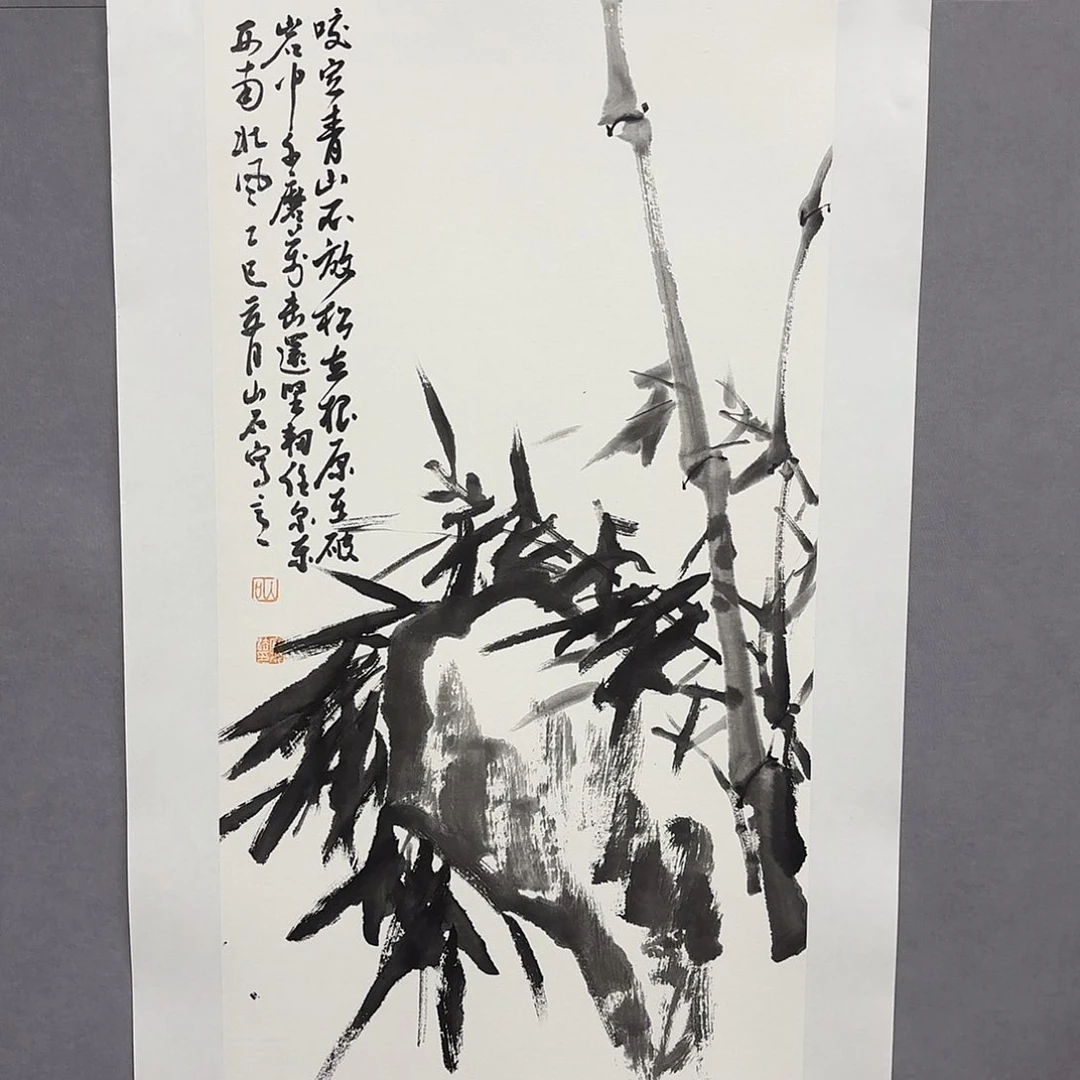 咬定青山不放松立根原在破
岩中千磨萬击還坚韧任尔东
西南北风乙巳月山石写